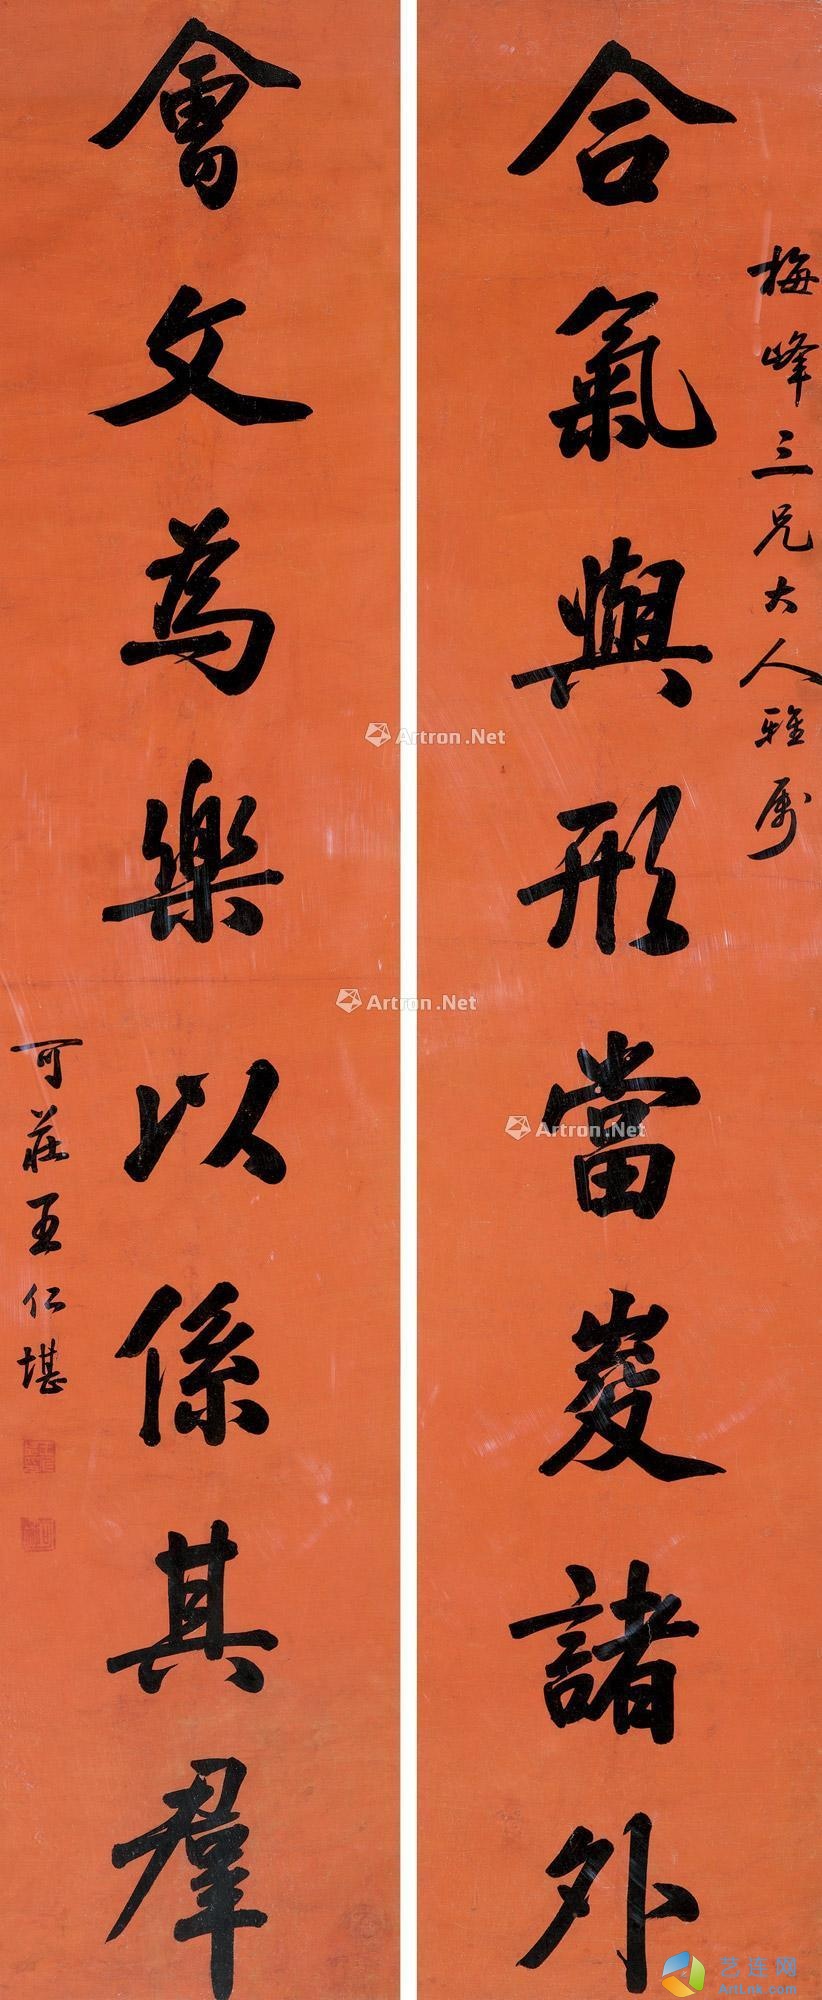 梅峰三兄大人雅属
合氣與形當㚇諸外
會文為樂以係其羣
可莊王仁堪
Artron.Net
Artron.Net
Artron.Net
艺连网
ArtLnk.com